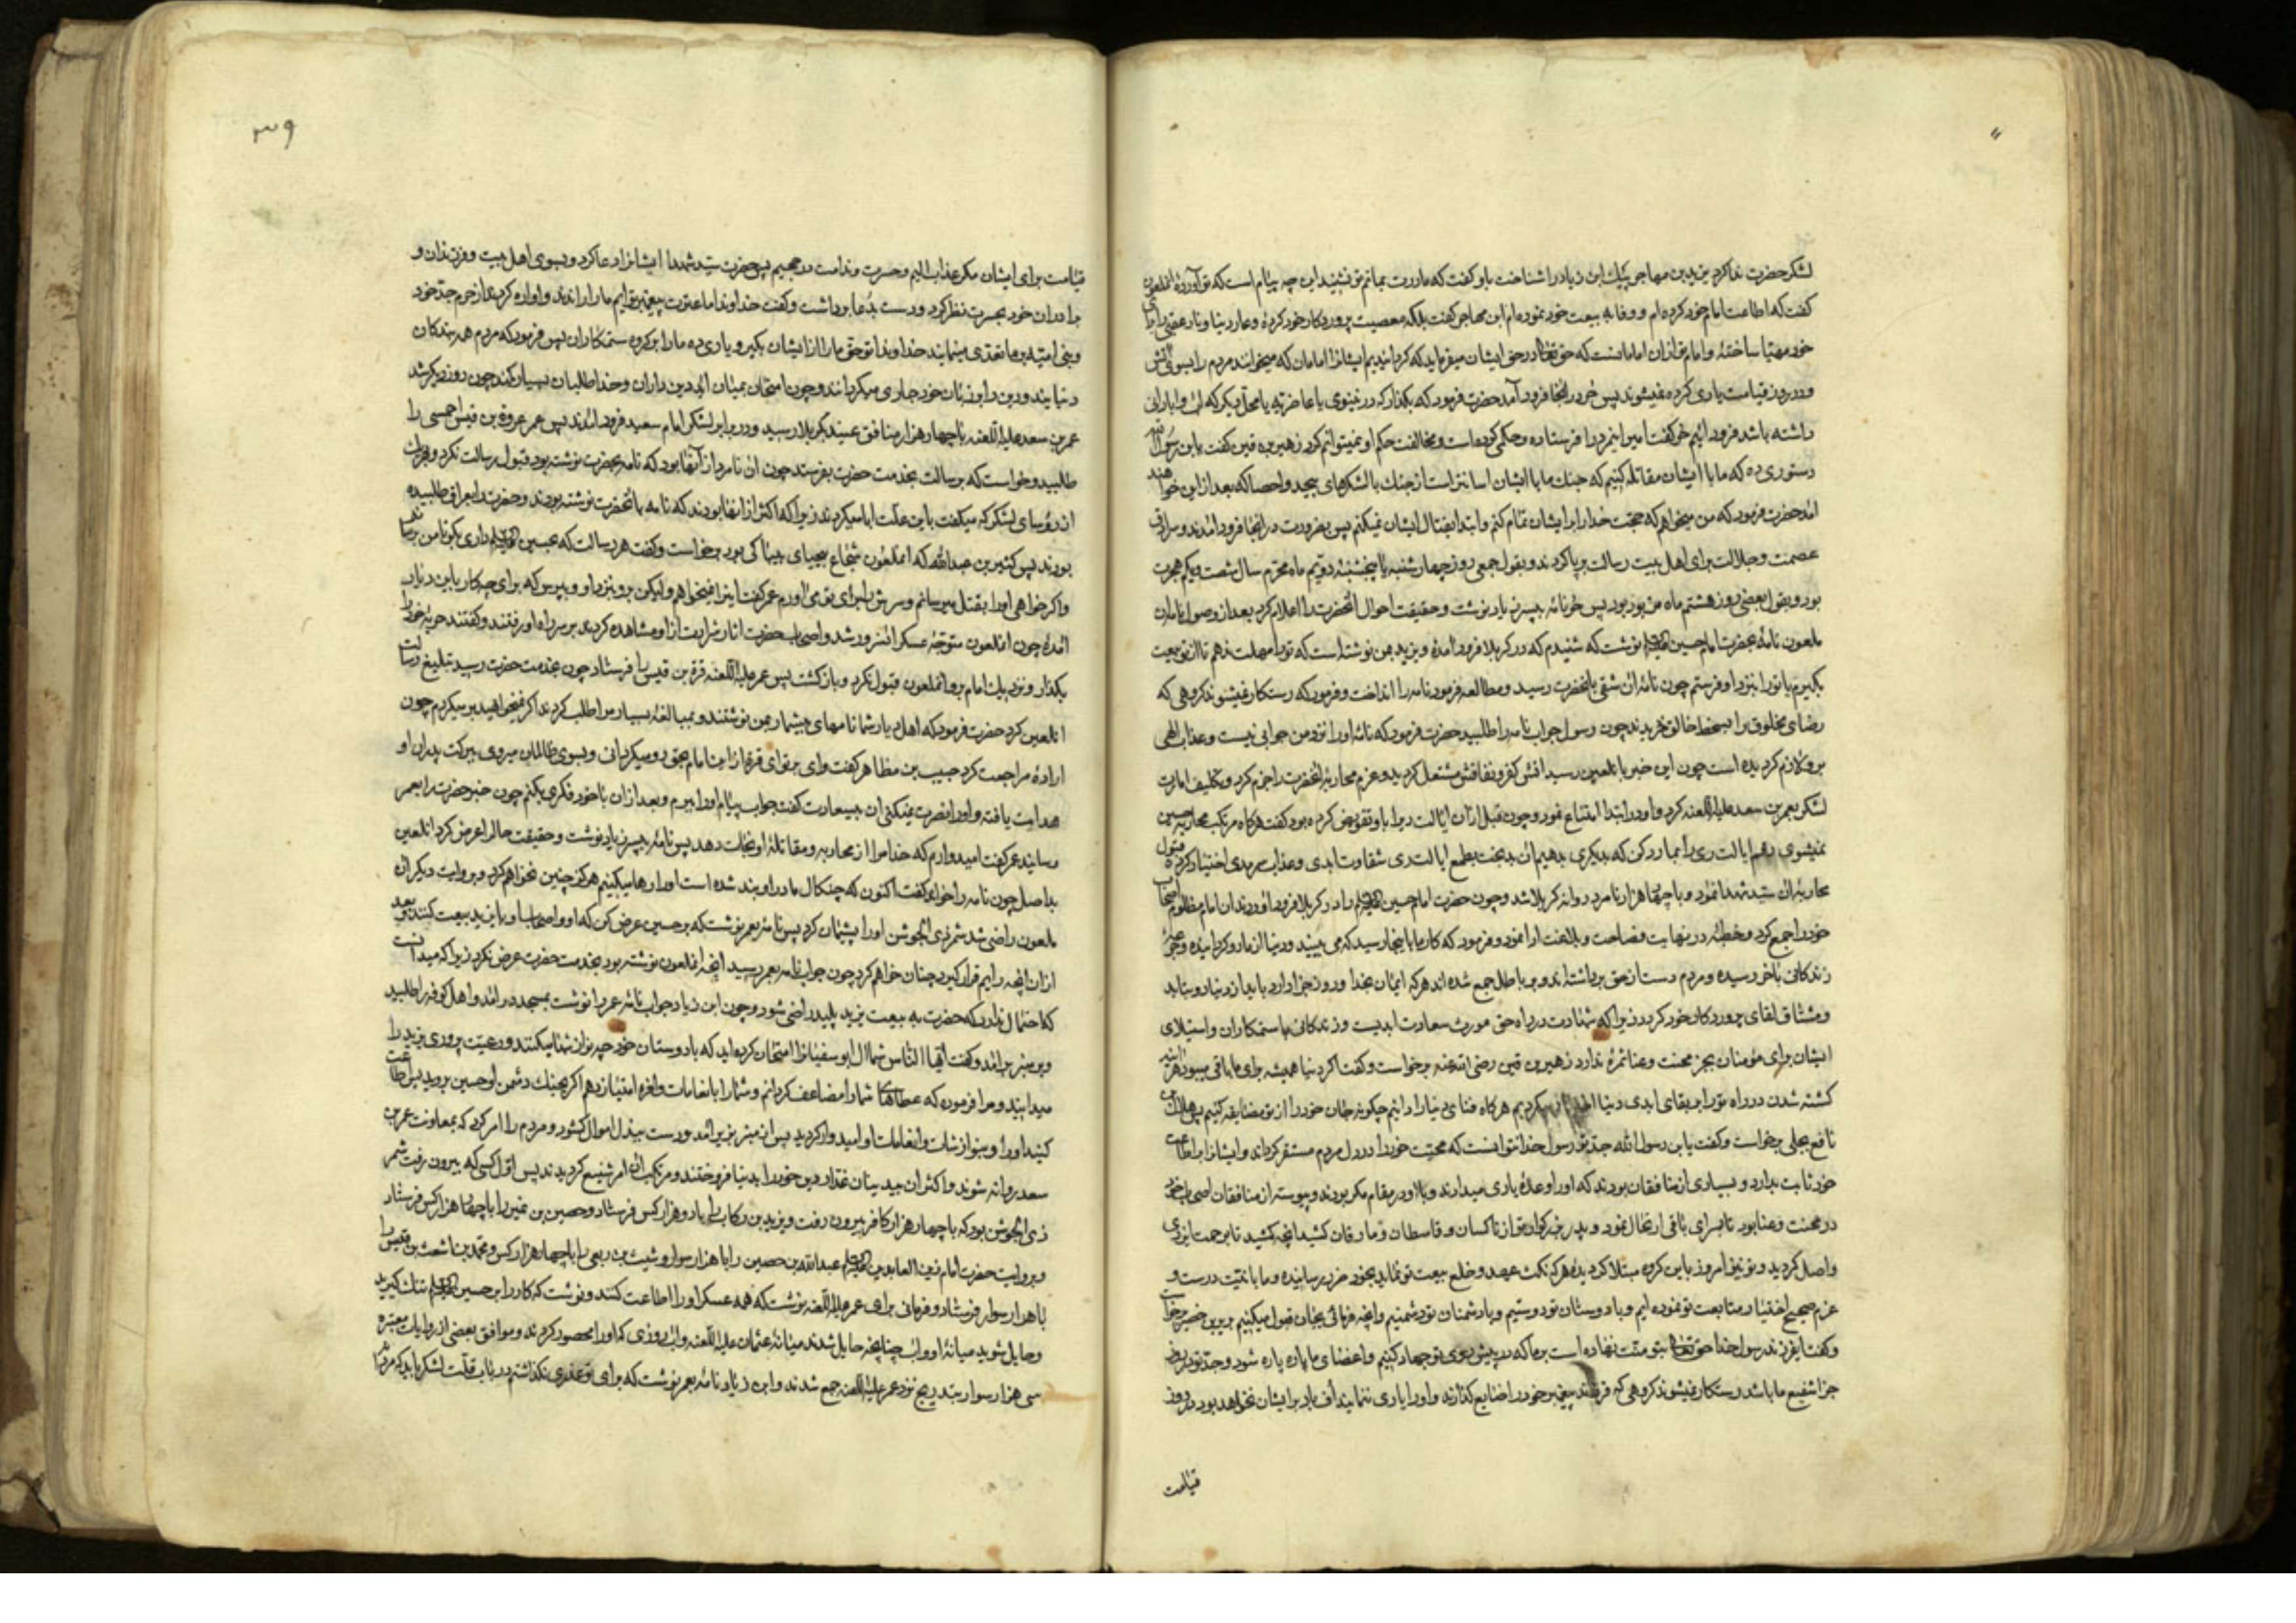 لشکر حضرت ندا کرد یزید بن مهاجر پیک ابن زیاد را شناخت باو گفت که مادرت بماتم تو نشیند این چه پیام است که تو آوردهٔ آنملعون
گفت که اطاعت امام خود کرده‌ام و وفا به بیعت خود نموده‌ام ابن مهاجر گفت بلکه معصیت پروردگار خود کردهٔ و عار دنیا و نار عقبی را برای
خود مهیا ساختهٔ و امام تو از آن امامانست که حق تعالی در حق ایشان میفرماید که گردانیدیم ایشانرا امامان که میخوانند مردم را بسوی آتش
و در روز قیامت یاری کرده نمیشوند پس حر در آنجا فرود آمد حضرت فرمود که بگذار که در نینوی یا غاضریه یا محل دیگر که آب و آبادانی
داشته باشد فرود آئیم حر گفت امیر اینمرد را فرستاده و حکمی کرده است و مخالفت حکم او نمیتوانم کرد زهیر بن قین گفت یابن رسول الله
دستوری ده که ما با ایشان مقاتله کنیم که جنگ ما با ایشان آسانتر است از جنگ با لشکرهای بیحد و احصا که بعد از این خواهند
آمد حضرت فرمود که من میخواهم که حجت خدا را بر ایشان تمام کنم و ابتدا بقتال ایشان نمیکنم پس بضرورت در آنجا فرود آمدند و سرادق
عصمت و جلالت برای اهل بیت رسالت برپا کردند و بقول جمعی روز چهارشنبه یا پنجشنبه دویم ماه محرم سال شصت و یکم هجرت
بود و بقول بعضی روز هشتم ماه مزبور بود پس حر نامه بپسر زیاد نوشت و حقیقت احوال آنحضرت را اعلام کرد بعد از وصول نامه آن
ملعون نامهٔ بحضرت امام حسین علیه السلم نوشت که شنیدم که در کربلا فرود آمدهٔ و یزید بمن نوشته است که ترا مهلت ندهم تا از تو بیعت
بگیرم یا ترا بنزد او فرستم چون نامهٔ آن شقی بآنحضرت رسید و مطالعه فرمود نامه را انداخت و فرمود که رستگار نمیشوند گروهی که
رضای مخلوق را بسخط خالق خریدند چون رسول جواب نامه را طلبید حضرت فرمود که نامهٔ او را نزد من جوابی نیست و عذاب الهی
بر او لازم گردیده است چون این خبر بآنلعین رسید آتش کفر و نفاقش مشتعل گردید و عزم محاربهٔ آنحضرت را جزم کرد و تکلیف امارت
لشکر بعمر بن سعد علیه اللعنه کرد و او در ابتدا امتناع نمود و چون قبل از آن ایالت ری را باو تفویض کرده بود گفت هرگاه مرتکب محاربه حسین
نمیشوی رقم ایالت ری را بما رد کن که بدیگری بدهیم آن بدبخت بطمع ایالت ری شقاوت ابدی و عذاب سرمدی اختیار کرده قبول
محاربهٔ آن سید شهدا نمود و با چهار هزار نامرد روانه کربلا شد و چون حضرت امام حسین علیه السلم را در کربلا فرود آوردند آن امام مظلوم اصحاب
خود را جمع کرد و خطبهٔ در نهایت فصاحت و بلاغت ادا نمود و فرمود که کار ما باینجا رسید که می بینید و دنیا از ما رو گردانیده و جرعهٔ
زندگانی بآخر رسیده و مردم دست از حق برداشته‌اند و بر باطل جمع شده‌اند هر که ایمان بخدا و روز جزا دارد باید از دنیا رو بتابد
و مشتاق لقای پروردگار خود گردد زیرا که شهادت در راه حق مورث سعادت ابدیست و زندگانی با ستمکاران و استیلای
ایشان برای مؤمنان بجز محنت و عنا ثمرهٔ ندارد زهیر بن قین رضی الله عنه برخواست و گفت اگر دنیا همیشه برای ما باقی میبود هرآینه
کشته شدن در راه ترا بر بقای ابدی دنیا اختیار میکردیم هرگاه فنای دنیا را دانیم چگونه جان خود را از تو مضایقه کنیم پس هلال بن
نافع بجلی برخواست و گفت یابن رسول الله جد تو رسول خدا نتوانست که محبت خود را در دل مردم مستقر گرداند و ایشانرا بر اطاعت
خود ثابت بدارد و بسیاری از منافقان بودند که او را وعدهٔ یاری میدادند و با او در مقام مکر بودند و پیوسته از منافقان اصحاب خود
در محنت و عنا بود تا بسرای باقی ارتحال نمود و پدر بزرگوار تو از ناکثان و قاسطان و مارقان کشید آنچه کشید تا برحمت ایزدی
واصل گردید و تو نیز امروز باین گروه مبتلا گردیدهٔ هر که نکث عهد و خلع بیعت تو نماید بخود ضرر رسانیده و ما با نیت درست و
عزم صحیح اختیار متابعت تو نموده‌ایم و با دوستان تو دوستیم و با دشمنان تو دشمنیم و آنچه فرمائی بجان قبول میکنیم بریر بن خضیر برخواست
و گفت ایفرزند رسول خدا حق تعالی بتو منت نهاده است بر ما که در پیش روی تو جهاد کنیم و اعضای ما پاره پاره شود و جد تو در روز
جزا شفیع ما باشد رستگار نمیشوند گروهی که فرزند پیغمبر خود را ضایع گذارند و او را یاری ننمایند اف باد بر ایشان نخواهد بود در روز
قیامت
۳۹
قیامت برای ایشان مگر عذاب الیم و حسرت و ندامت در جحیم پس حضرت سید شهدا ایشانرا دعا کرد و بسوی اهل بیت و فرزندان و
برادران خود بحسرت نظر کرد و دست بدعا برداشت و گفت خداوندا ما عترت پیغمبر تو ایم ما را راندند و آواره کردند از حرم جد خود
و بنی امیه بر ما تعدی مینمایند خداوندا تو حق ما را از ایشان بگیر و یاری ده ما را بر گروه ستمکاران پس فرمود که مردم همه بندگان
دنیایند و دین را بر زبان خود جاری میگردانند و چون امتحان بمیان آید دین داران و خدا طلبان بسیار کمند چون روز دیگر شد
عمر بن سعد علیه اللعنه با چهار هزار منافق عنید بکربلا رسید و در برابر لشکر امام سعید فرود آمدند پس عمر عروة بن قیس احمسی را
طلبید و خواست که برسالت بخدمت حضرت بفرستد چون آن نامرد از آنها بود که نامه بحضرت نوشته بود قبول رسالت نکرد و بهر یک
از رؤسای لشکر که میگفت باین علت ابا میکردند زیرا که اکثر از آنها بودند که نامه بآنحضرت نوشته بودند و حضرت را بعراق طلبیده
بودند پس کثیر بن عبدالله که آنملعون شجاع بیحیای بیباکی بود برخواست و گفت هر رسالت که بحسین علیه السلم داری بگو تا من برسانم
و اگر خواهی او را بقتل میرسانم و سرش را برای تو می آورم عمر گفت اینرا نمیخواهم ولیکن برو بنزد او و بپرس که برای چکار باین دیار
آمدهٔ چون آنملعون متوجه عسکر آنسرور شد و اصحاب حضرت آثار شرارت از او مشاهده کردند بر سر راه او رفتند و گفتند حربهٔ خود را
بگذار و نزدیک امام برو آنملعون قبول نکرد و بازگشت پس عمر علیه اللعنه قرة بن قیس را فرستاد چون بخدمت حضرت رسید تبلیغ رسالت
آنلعین کرد حضرت فرمود که اهل دیار شما نامهای بیشمار بمن نوشتند و بمبالغه بسیار مرا طلب کردند اگر نمیخواهید بر میگردم چون
ارادهٔ مراجعت کرد حبیب بن مظاهر گفت وای بر تو ای قره از این امام بحق رو میگردانی و بسوی ظالمان میروی ببرکت پدران او
هدایت یافتهٔ و او را نصرت نمیکنی آن بیسعادت گفت جواب پیام او را ببرم و بعد از آن با خود فکری بکنم چون خبر حضرت را بعمر
رسانید عمر گفت امیدوارم که خدا مرا از محاربه و مقاتلهٔ او نجات دهد پس نامهٔ بپسر زیاد نوشت و حقیقت حال را عرض کرد آنلعین
بداصل چون نامه را خواند گفت اکنون که چنگال ما در او بند شده است او را رها میکنیم هرگز چنین نخواهم کرد و بروایت دیگر آن
ملعون راضی شد شمر ذی الجوشن او را پشیمان کرد پس نامهٔ بعمر نوشت که بر حسین عرض کن که او و اصحاب او با یزید بیعت کنند و بعد
از آن آنچه رایم قرار گیرد چنان خواهم کرد چون جواب نامه بعمر رسید آنچه آنملعون نوشته بود بخدمت حضرت عرض نکرد زیرا که میدانست
که احتمال ندارد که حضرت به بیعت یزید پلید راضی شود و چون ابن زیاد جواب نامهٔ عمر را نوشت بمسجد در آمد و اهل کوفه را طلبید
و بر منبر بر آمد و گفت ایها الناس شما آل ابوسفیانرا امتحان کرده‌اید که با دوستان خود چه نوازشها میکنند و رعیت پروری یزید را
میدانید و مرا فرموده که عطاهای شما را مضاعف گردانم و شما را بانعامات وافره امتیاز دهم اگر بجنگ دشمن او حسین بروید پس اطاعت
کنید او را و بنوازشات و انعامات او امیدوار گردید پس از منبر بزیر آمد و دست ببذل اموال کشود و مردم را امر کرد که بمعاونت عمر بن
سعد روانه شوند و اکثر آن بیدینان غدار دین خود را بدنیا فروختند و مرتکب آن امر شنیع گردیدند پس اول کسی که بیرون رفت شمر
ذی الجوشن بود که با چهار هزار کافر بیرون رفت و یزید بن رکاب را با دو هزار کس فرستاد و حصین بن نمیر را با چهار هزار کس فرستاد
و بروایت حضرت امام زین العابدین علیه السلم عبدالله بن حصین را با هزار سوار و شیث بن ربعی را با چهار هزار کس و محمد بن اشعث بن قیس را
با هزار سوار فرستاد و فرمانی برای عمر علیه اللعنه نوشت که همه عسکر او را اطاعت کنند و نوشت که کار را بر حسین علیه السلم تنگ گیرید
و حایل شوید میانهٔ او و آب چنانچه حایل شدند میانهٔ عثمان علیه اللعنه و آب روزی که او را محصور کردند و موافق بعضی از روایات معتبره
سی هزار سوار بتدریج نزد عمر علیه اللعنه جمع شدند و ابن زیاد نامهٔ بعمر نوشت که برای تو عذری نگذاشتم در باب قلت لشکر باید که مردانه